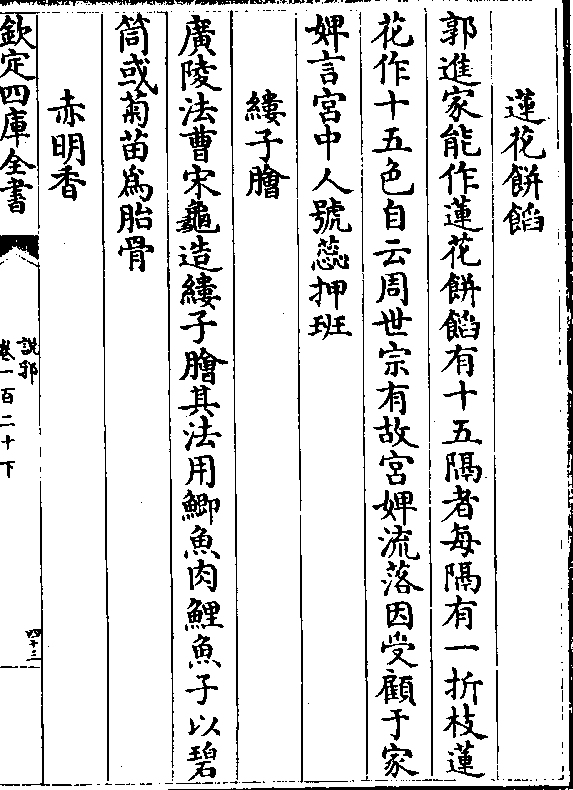 蓮花餅餡
郭進家能作蓮花餅餡有十五隔者每隔有一折枝蓮
花作十五色自云周世宗有故宮婢流落因受顧于家
婢言宮中人號蕊押班
縷子膾
廣陵法曹宋龜造縷子膾其法用鯽魚肉鯉魚子以碧
筒或菊苗為胎骨
赤明香
欽定四庫全書
說郛
卷一百二十下
四十三